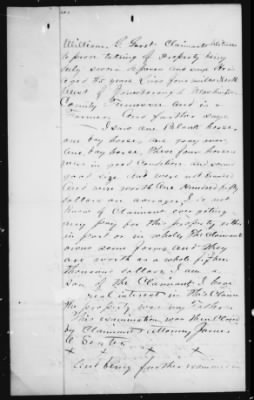 William C. Gest Claimants Witness
to prove taking of Property being
duly sworn deposes and says He is
aged 35 years Lives four miles North
West of Jonesborough Washington
County Tennessee and is a
Farmer and further says
I saw one Black horse
one bay horse, one gray mare
one bay horse. These four horses
were in good Condition and were
good size and were not
and were worth one hundred fifty
dollars on average. I do not
know of Claimant ever getting
any pay for this property either
in part or in whole. The Claimant
owns some farms and they
are worth as a whole fifteen
thousand dollars. I am a
son of the Claimant. I have
real interest in this Claim
the property was my father's
This examination was then Closed
by Claimants Attorney James
C
x x x x
And being further examined